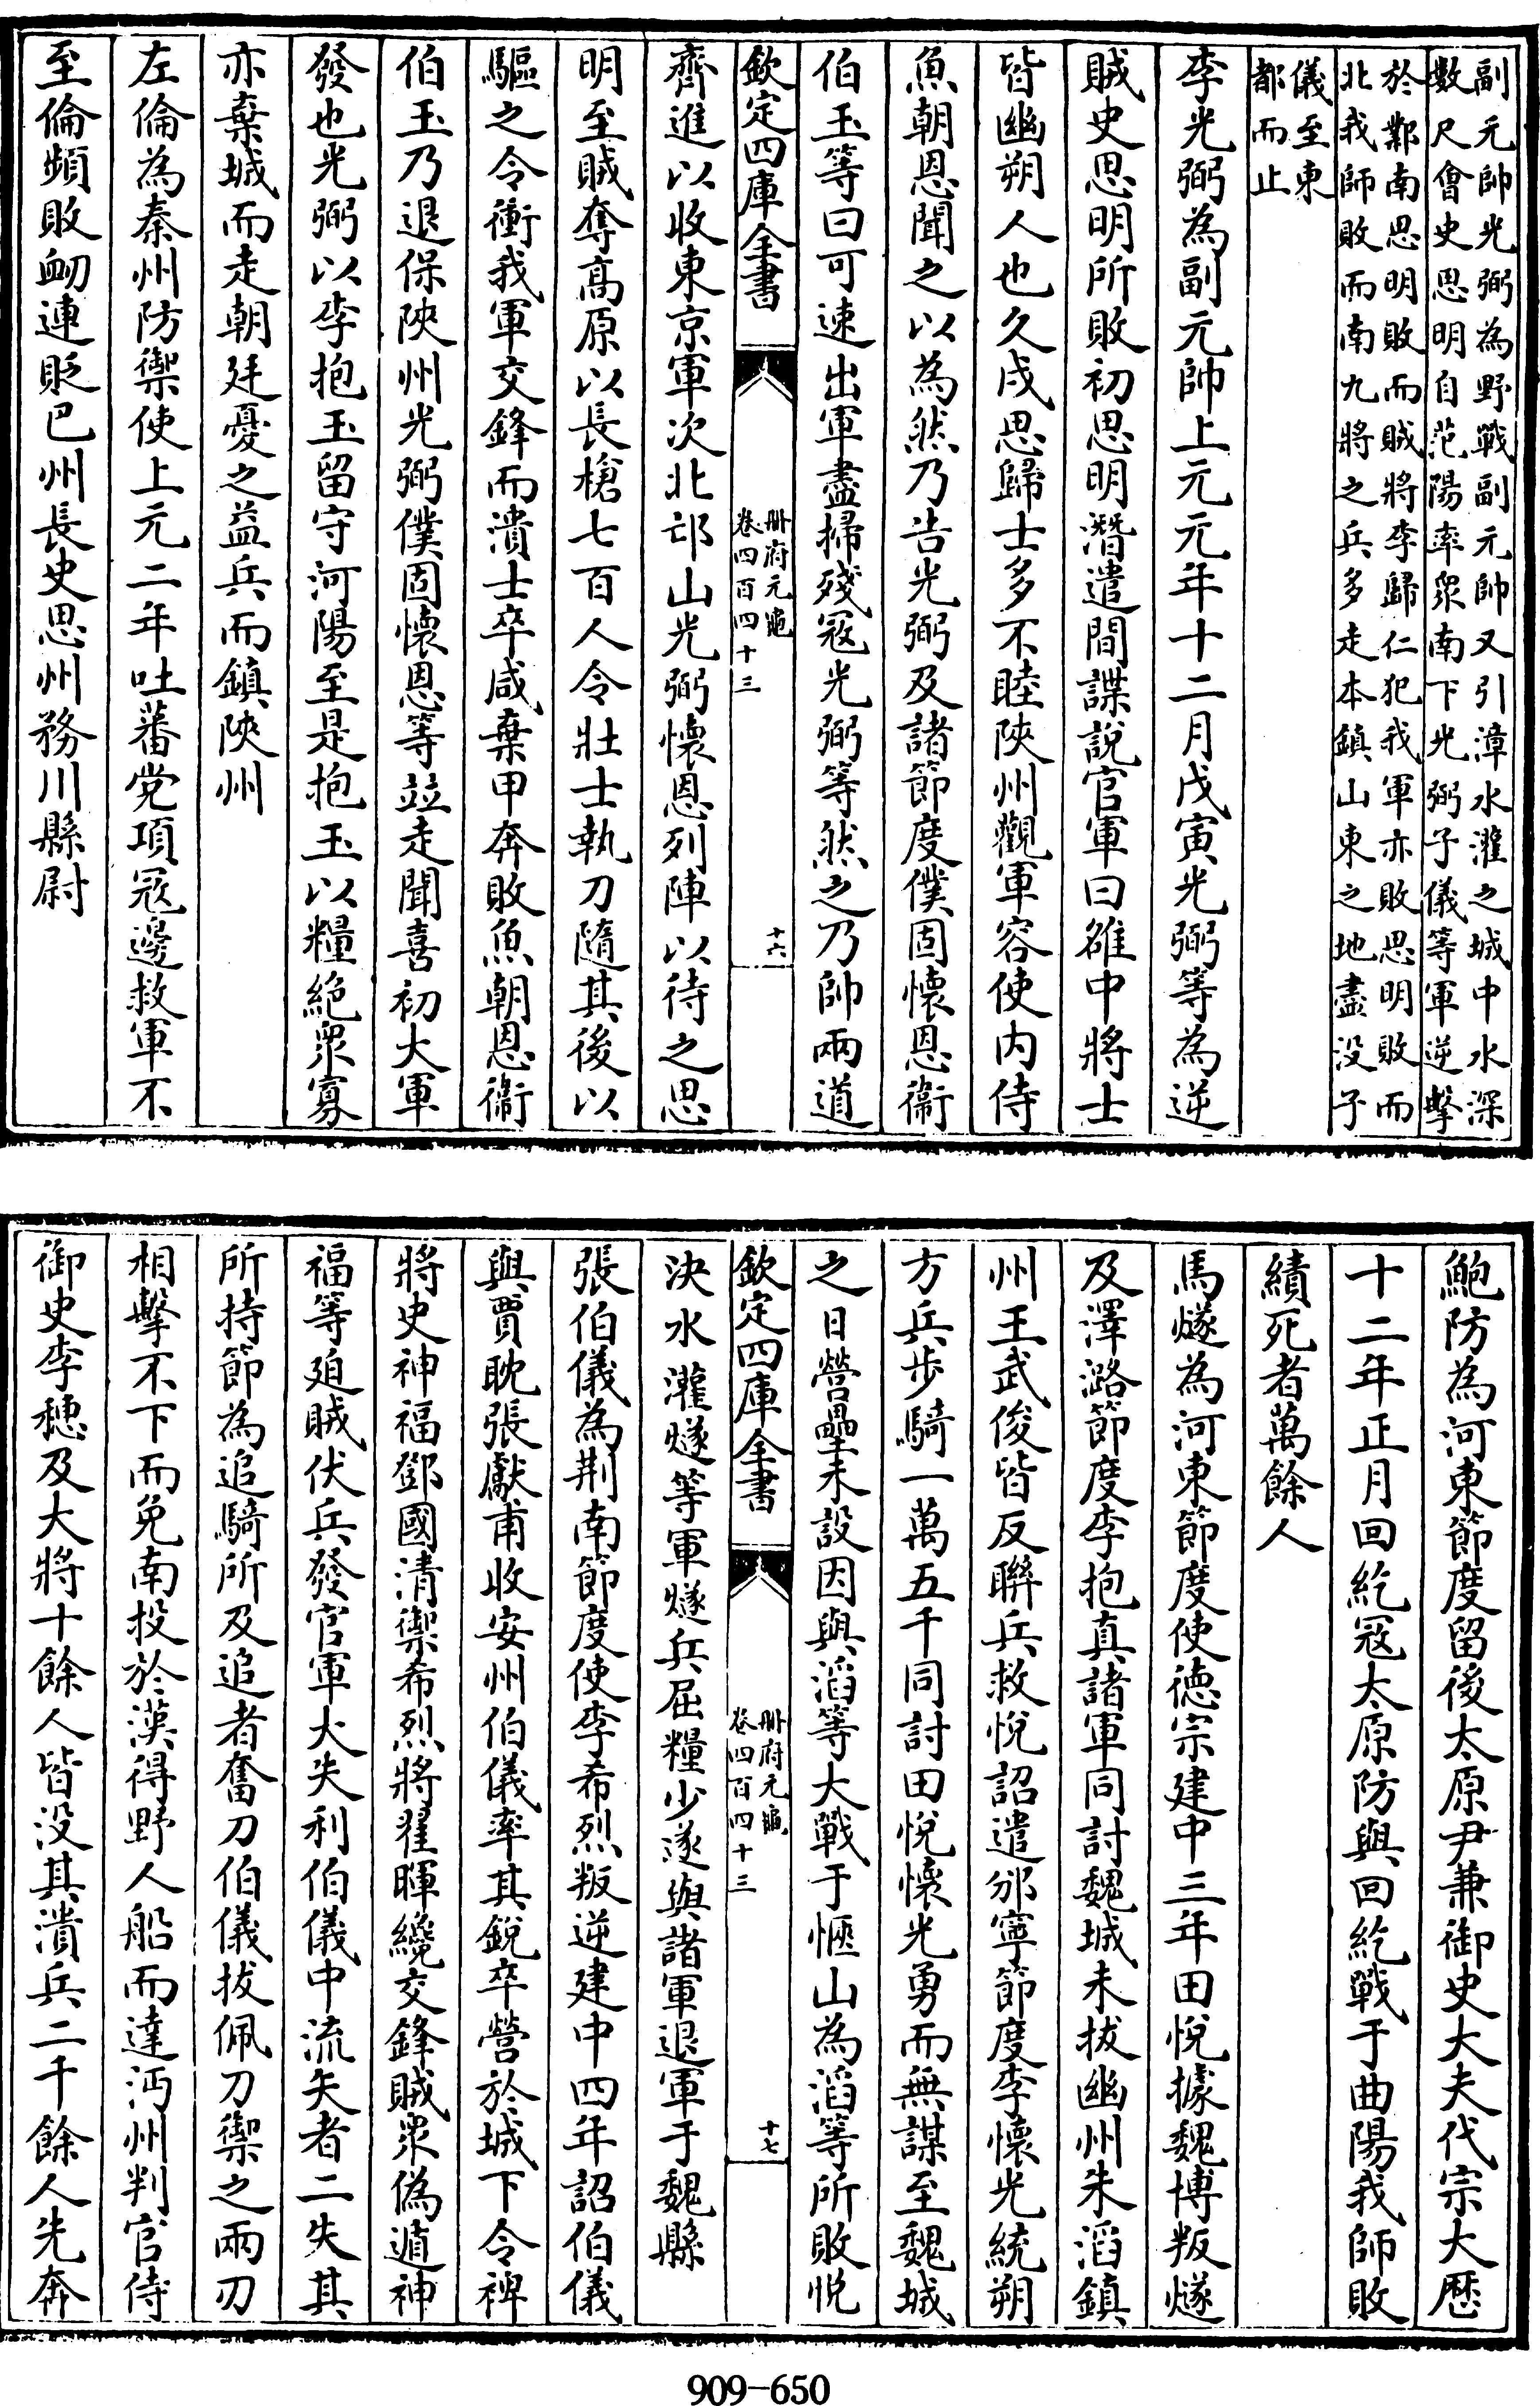 副元帥光弼為野戰副元帥又引漳水灌之城中水深
數尺會史思明自范陽率衆南下光弼子儀等軍逆擊
於鄴南思明敗而賊將李歸仁犯我軍亦敗思明敗而
北我師敗而南九將之兵多走本鎮山東之地盡没子
儀至東
都而止
李光弼為副元帥上元元年十二月戊寅光弼等為逆
賊史思明所敗初思明潛遣間諜説官軍曰雒中將士
皆幽朔人也久戍思歸士多不睦陝州觀軍容使内侍
魚朝恩聞之以為然乃告光弼及諸節度僕固懷恩衞
伯玉等曰可速出軍盡掃殘冦光弼等然之乃帥兩道
欽定四庫全書
冊府元龜
卷四百四十三
十六
齊進以收東京軍次北邙山光弼懷恩列陣以待之思
明至賊奪髙原以長槍七百人令壯士執刀隨其後以
驅之令衝我軍交鋒而潰士卒咸棄甲奔敗魚朝恩衞
伯玉乃退保陝州光弼僕固懷恩等竝走聞喜初大軍
發也光弼以李抱玉留守河陽至是抱玉以糧絶衆寡
亦棄城而走朝廷憂之益兵而鎮陝州
左倫為秦州防禦使上元二年吐蕃党項冦邊救軍不
至倫頻敗衂連貶巴州長史思州務川縣尉
鮑防為河東節度留後太原尹兼御史大夫代宗大厯
十二年正月回紇冦太原防與回紇戰于曲陽我師敗
績死者萬餘人
馬燧為河東節度使德宗建中三年田悦據魏博叛燧
及澤潞節度李抱真諸軍同討魏城未拔幽州朱滔鎮
州王武俊皆反聯兵救悦詔遣邠寧節度李懷光統朔
方兵步騎一萬五千同討田悦懷光勇而無謀至魏城
之日營壘未設因與滔等大戰于愜山為滔等所敗悦
欽定四庫全書
冊府元龜
卷四百四十三
十七
決水灌燧等軍燧兵屈糧少遂與諸軍退軍于魏縣
張伯儀為荆南節度使李希烈叛逆建中四年詔伯儀
與賈耽張獻甫收安州伯儀率其鋭卒營於城下令裨
將史神福鄧國清禦希烈將翟暉纔交鋒賊衆偽遁神
福等廹賊伏兵發官軍大失利伯儀中流矢者二失其
所持節為追騎所及追者奮刀伯儀拔佩刀禦之兩刃
相擊不下而免南投於漢得野人船而達沔州判官侍
御史李穗及大將十餘人皆没其潰兵二千餘人先奔
909-650